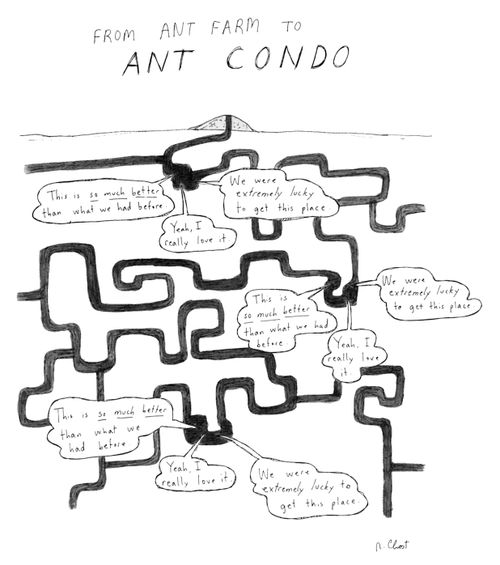 FROM ANT FARM TO
ANT CONDO
This is so much better
than what we had before.
We were
extremely lucky
to get this place
Yeah, I
really love it
This is
so much better
than what we had
before.
We were
extremely lucky
to get this place.
Yeah, I
really love
it
This is so much better
than what we
had before
Yeah, I
really love it
We were
extremely lucky to
get this place.
R. Chast